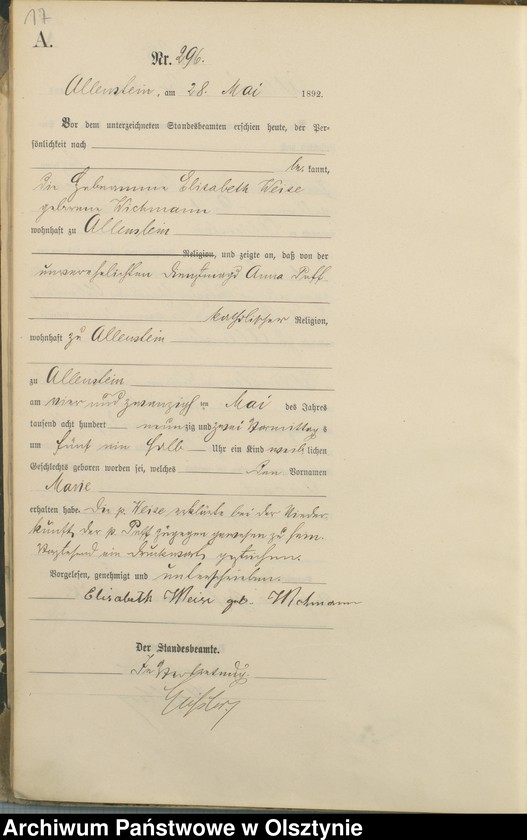 17
A.
Nr. 296.
Allenstein, am 28. Mai 1892.
Vor dem unterzeichneten Standesbeamten erschien heute, der Per-
sönlichkeit nach
be kannt,
die Hebeamme Elisabeth Weise
geborene Wichmann
wohnhaft zu Allenstein
Religion, und zeigte an, daß von der
unverehelichten Dienstmagd Anna
katholischer Religion,
wohnhaft zu Allenstein
zu Allenstein
am vier und zwanzigsten Mai des Jahres
tausend acht hundert neunzig und zwei Vormittags
um fünf ein halb Uhr ein Kind weiblichen
Geschlechts geboren worden sei, welches den Vornamen
Marie
erhalten habe. Die p. Weise erklärte bei der Nieder-
kunft der p. zugegen gewesen zu sein.
Vorstehend ein Druckwort gestrichen.
Vorgelesen, genehmigt und unterschrieben.
Elisabeth Weise geb. Wichmann
Der Standesbeamte.
In Vertretung